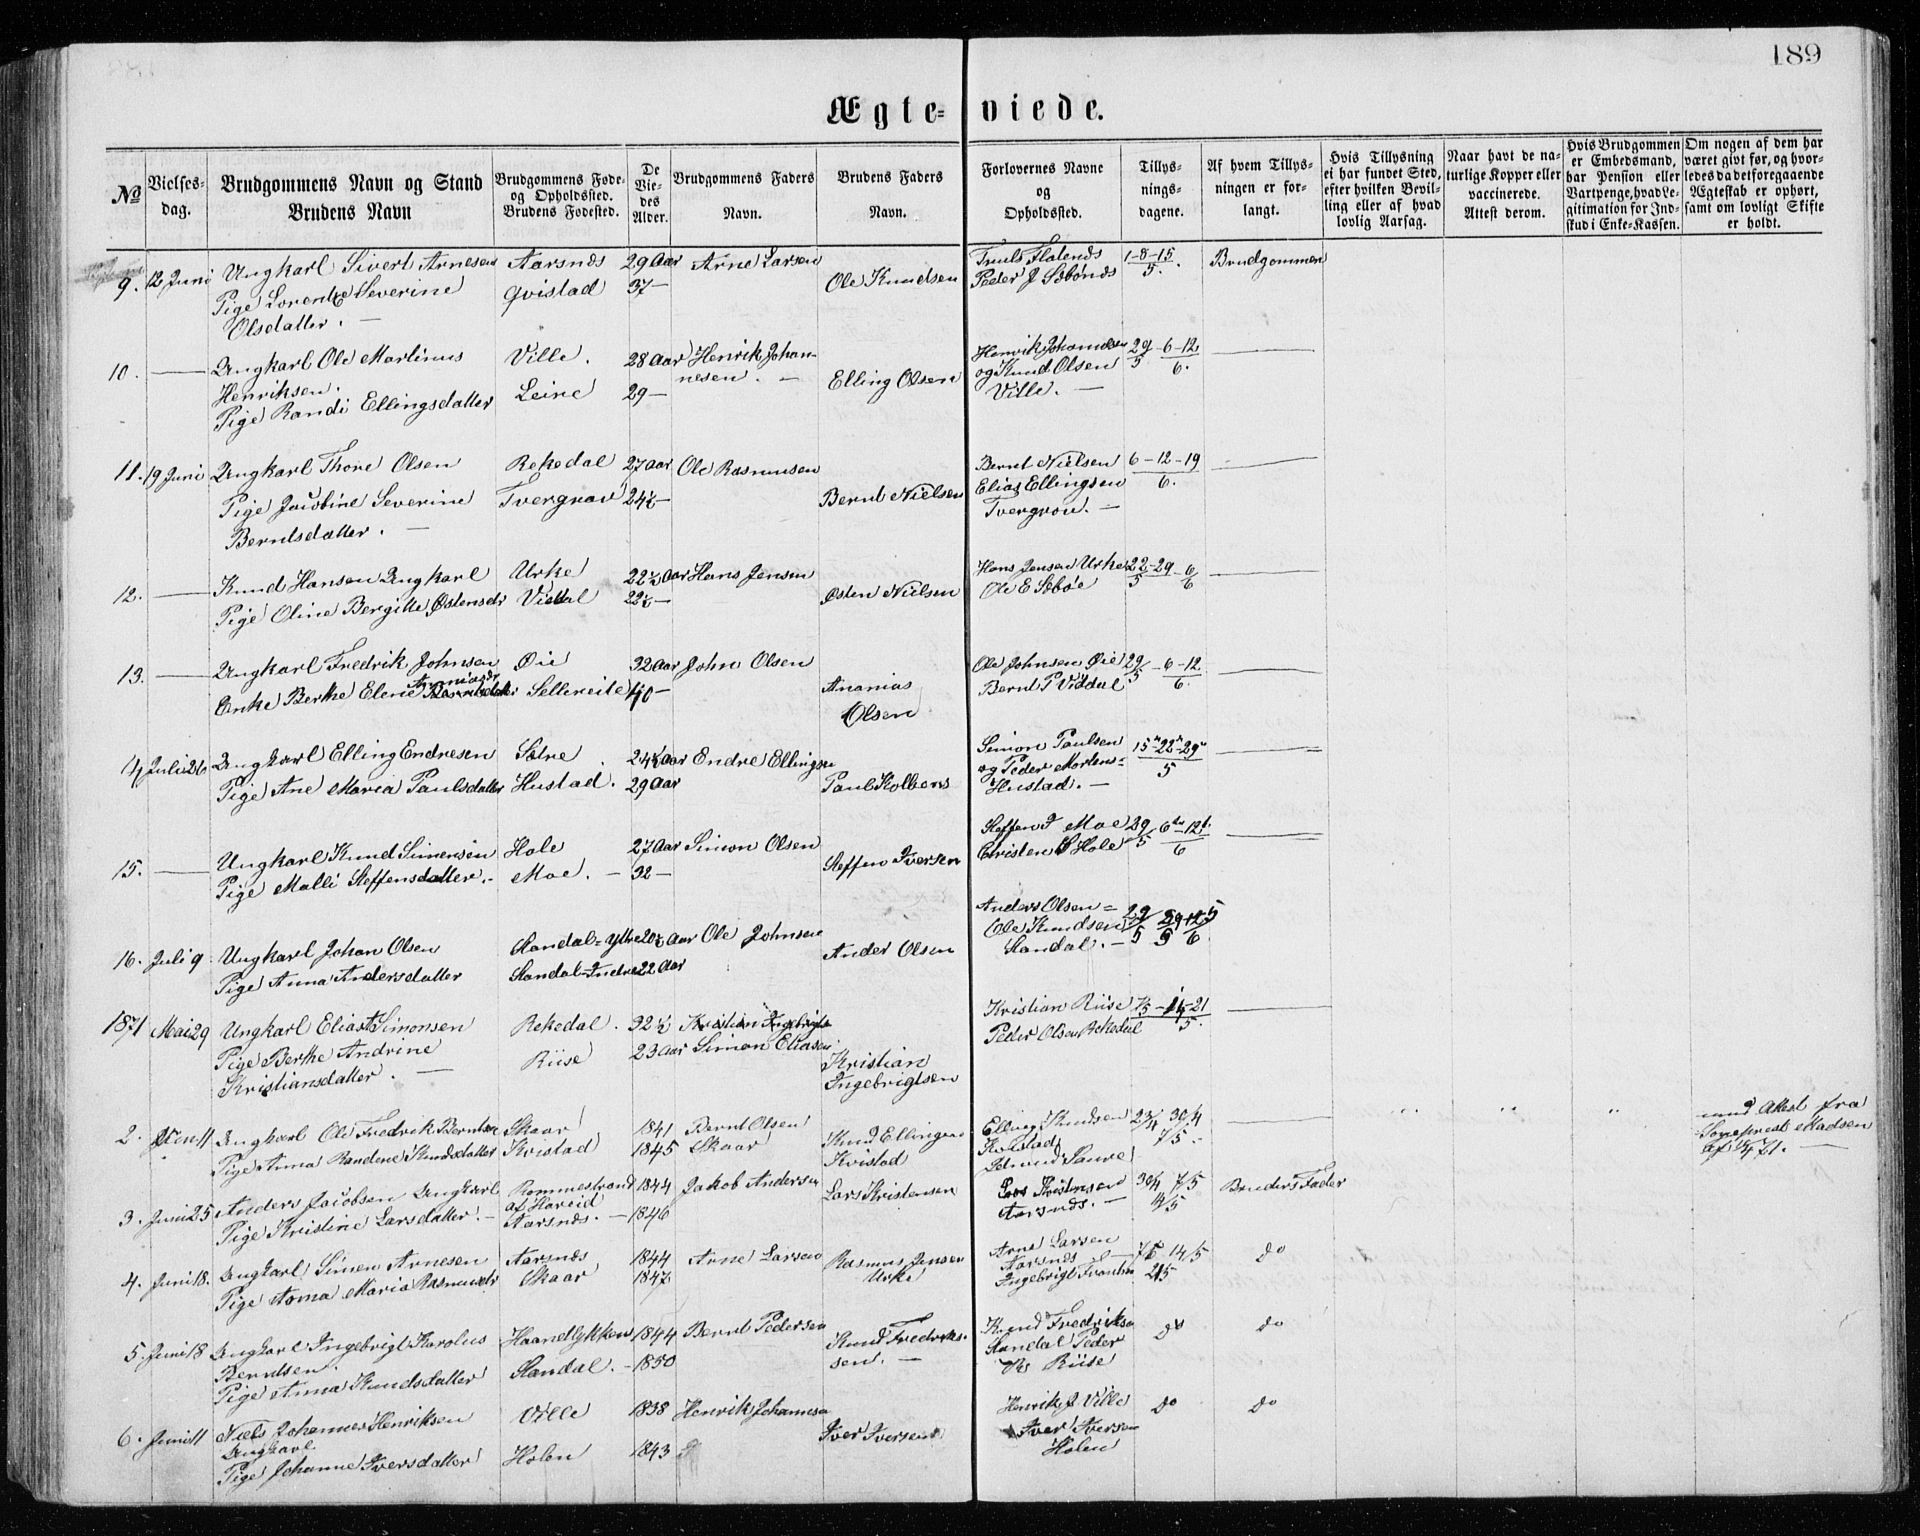 189
Ægte-viede.
№
Vielses-
dag.
Brudgommens Navn og Stand
Brudens Navn
Brudgommens Føde-
og Opholdssted.
Brudens Fødested.
De
Vie-
des
Alder.
Brudgommens Faders
Navn.
Brudens Faders
Navn.
Forlovernes Navne
og
Opholdssted.
Tillys-
nings-
dagene.
Af hvem Tillys-
ningen er for-
langt.
Hvis Tillysning
ei har fundet Sted,
efter hvilken Bevil-
ling eller af hvad
lovlig Aarsag.
Naar havt de na-
turlige Kopper eller
vaccinerede.
Attest derom.
Hvis Brudgommen
er Embedsmand,
har Pension eller
Vartpenge, hvad Le-
gitimation for Ind-
skud i Enke-Kassen.
Om nogen af dem har
været givt før, og hvor-
ledes da det foregaaende
Ægteskab er ophørt,
samt om lovligt Skifte
er holdt.
9. 12 Juni Ungkarl Sivert Arnesen Aarsnæs 29 Aar Arne Larsen
Pige Lorentze Severine Qvistad 37 — Ole Knudsen
Olsdatter. —
Truls Flatenæs 1-8-15 Brudgommen
Peder J Sæbønæs 5.
10. — Ungkarl Ole Martinus Ville. 28 Aar Henrik Johan-
Henriksen. nesen. —
Pige Randi Ellingsdatter Leine 29 — Elling Olsen
Henrik Johansen 29 - 6 - 12 —
og Knud Olsen 5 6.
Ville. —
11. 19 Juni Ungkarl Thore Olsen Rekedal 27 Aar Ole Rasmusen
Pige Jacobine Severine Tvergrov 24½ — Bernt Nielsen
Berntsdatter. —
Bernt Nielsen 6 - 12 - 19 —
Elias Ellingsen 6.
Tvergrov. —
12. — Knud Hansen Ungkarl Urke 22½ Aar Hans Jensen
Pige Oline Bergitte Østensdr Viddal 22½ — Østen Nielsen
Hans Jensen Urke 22-29 - 6 —
Ole E Sæbøe 5 6
13. — Ungkarl Fredrik Johnsen Øie 32 Aar John Olsen
Enke Berthe Elene Ananiasdr Sellereite 40 — Ananias
Olsen
Ole Johnsen Øie 29 - 6 - 12 —
Bernt P Viddal 5 6.
14 Juli 26 Ungkarl Elling Endresen Sætre 24½ Aar Endre Ellingsen
Pige Ane Maria Paulsdatter Hustad. 29 Aar Paul Kolbens
Simon Paulsen 15-22-29 —
og Peder Mortens= 5
Hustad. —
15. — Ungkarl Knud Simensen Hole 27 Aar Simon Olsen
Pige Malli Steffensdatter. - Moe. — 32 — Steffen Iversen
Steffen I Moe 29 6 - 12 —
Christen S Hole 5 6
16. Juli 9 Ungkarl Johan Olsen Standal=Ytre 20½ Aar Ole Johnsen
Pige Anna Andersdatter Standal=Indre 22 Aar Ander Olsen
Anders Olsen =
Ole Knudsen
Standal. —
1871 Mai 29 Ungkarl Elias Simonsen Rekedal. 32½
Pige Berthe Andrine Riise 23 Aar Simon Eliasen
Kristiansdatter. — Kristian
Ingebrigtsen
Kristian Riise 7/5 - 14 - 21 —
Peder Olsen Rekedal 5.
2. Juni 11 Ungkarl Ole Fredrik Berntsen Skaar 1841 Bernt Olsen
Pige Anna Randene Knudsdatter Kvistad 1845 Skaar Knud Ellingsen
Kvistad
Elling Knudsen 23/4 30/4 —
Kvistad 7/5
Edmund Saure
med Attest fra
Sogneprest Madsen
af 15/4 71. —
3. Juni 25 Anders Jacobsen Ungkarl Rommestrand 1844 Jakob Andersen Lars Kristensen
af Hareid
Pige Kristine Larsdatter. — Aarsnæs. — 1846
Lars Kristensen 30/4 7/5 Brudens Fader
Aarsnæs. — 14/5
4. Juni 18. Ungkarl Simen Arnesen Aarsnæs 1844 Arne Larsen Rasmus Jensen
Pige Anna Maria Rasmusdr Skaar 1847 Urke
Arne Larsen
Aarsnæs — 7/5 14/5 do
Ingebrigt Frantsen 21/5
5. Juni 18 Ungkarl Ingebrigt Karolus Haandlykken 1844 Bernt Pedersen Knud Fredriks-
Berntsen. sen. —
Pige Anna Knudsdatter Standal. - 1850
Knud Fredriksen do do
Standal Peder
Riise
6. Juni 11 Niels Johannes Henriksen Ville 1838 Henrik Johannesen Iver Iversen
Ungkarl
Pige Johanne Iversdatter Holen 1843
Henrik J Ville do do
Iver Iversen
Holen